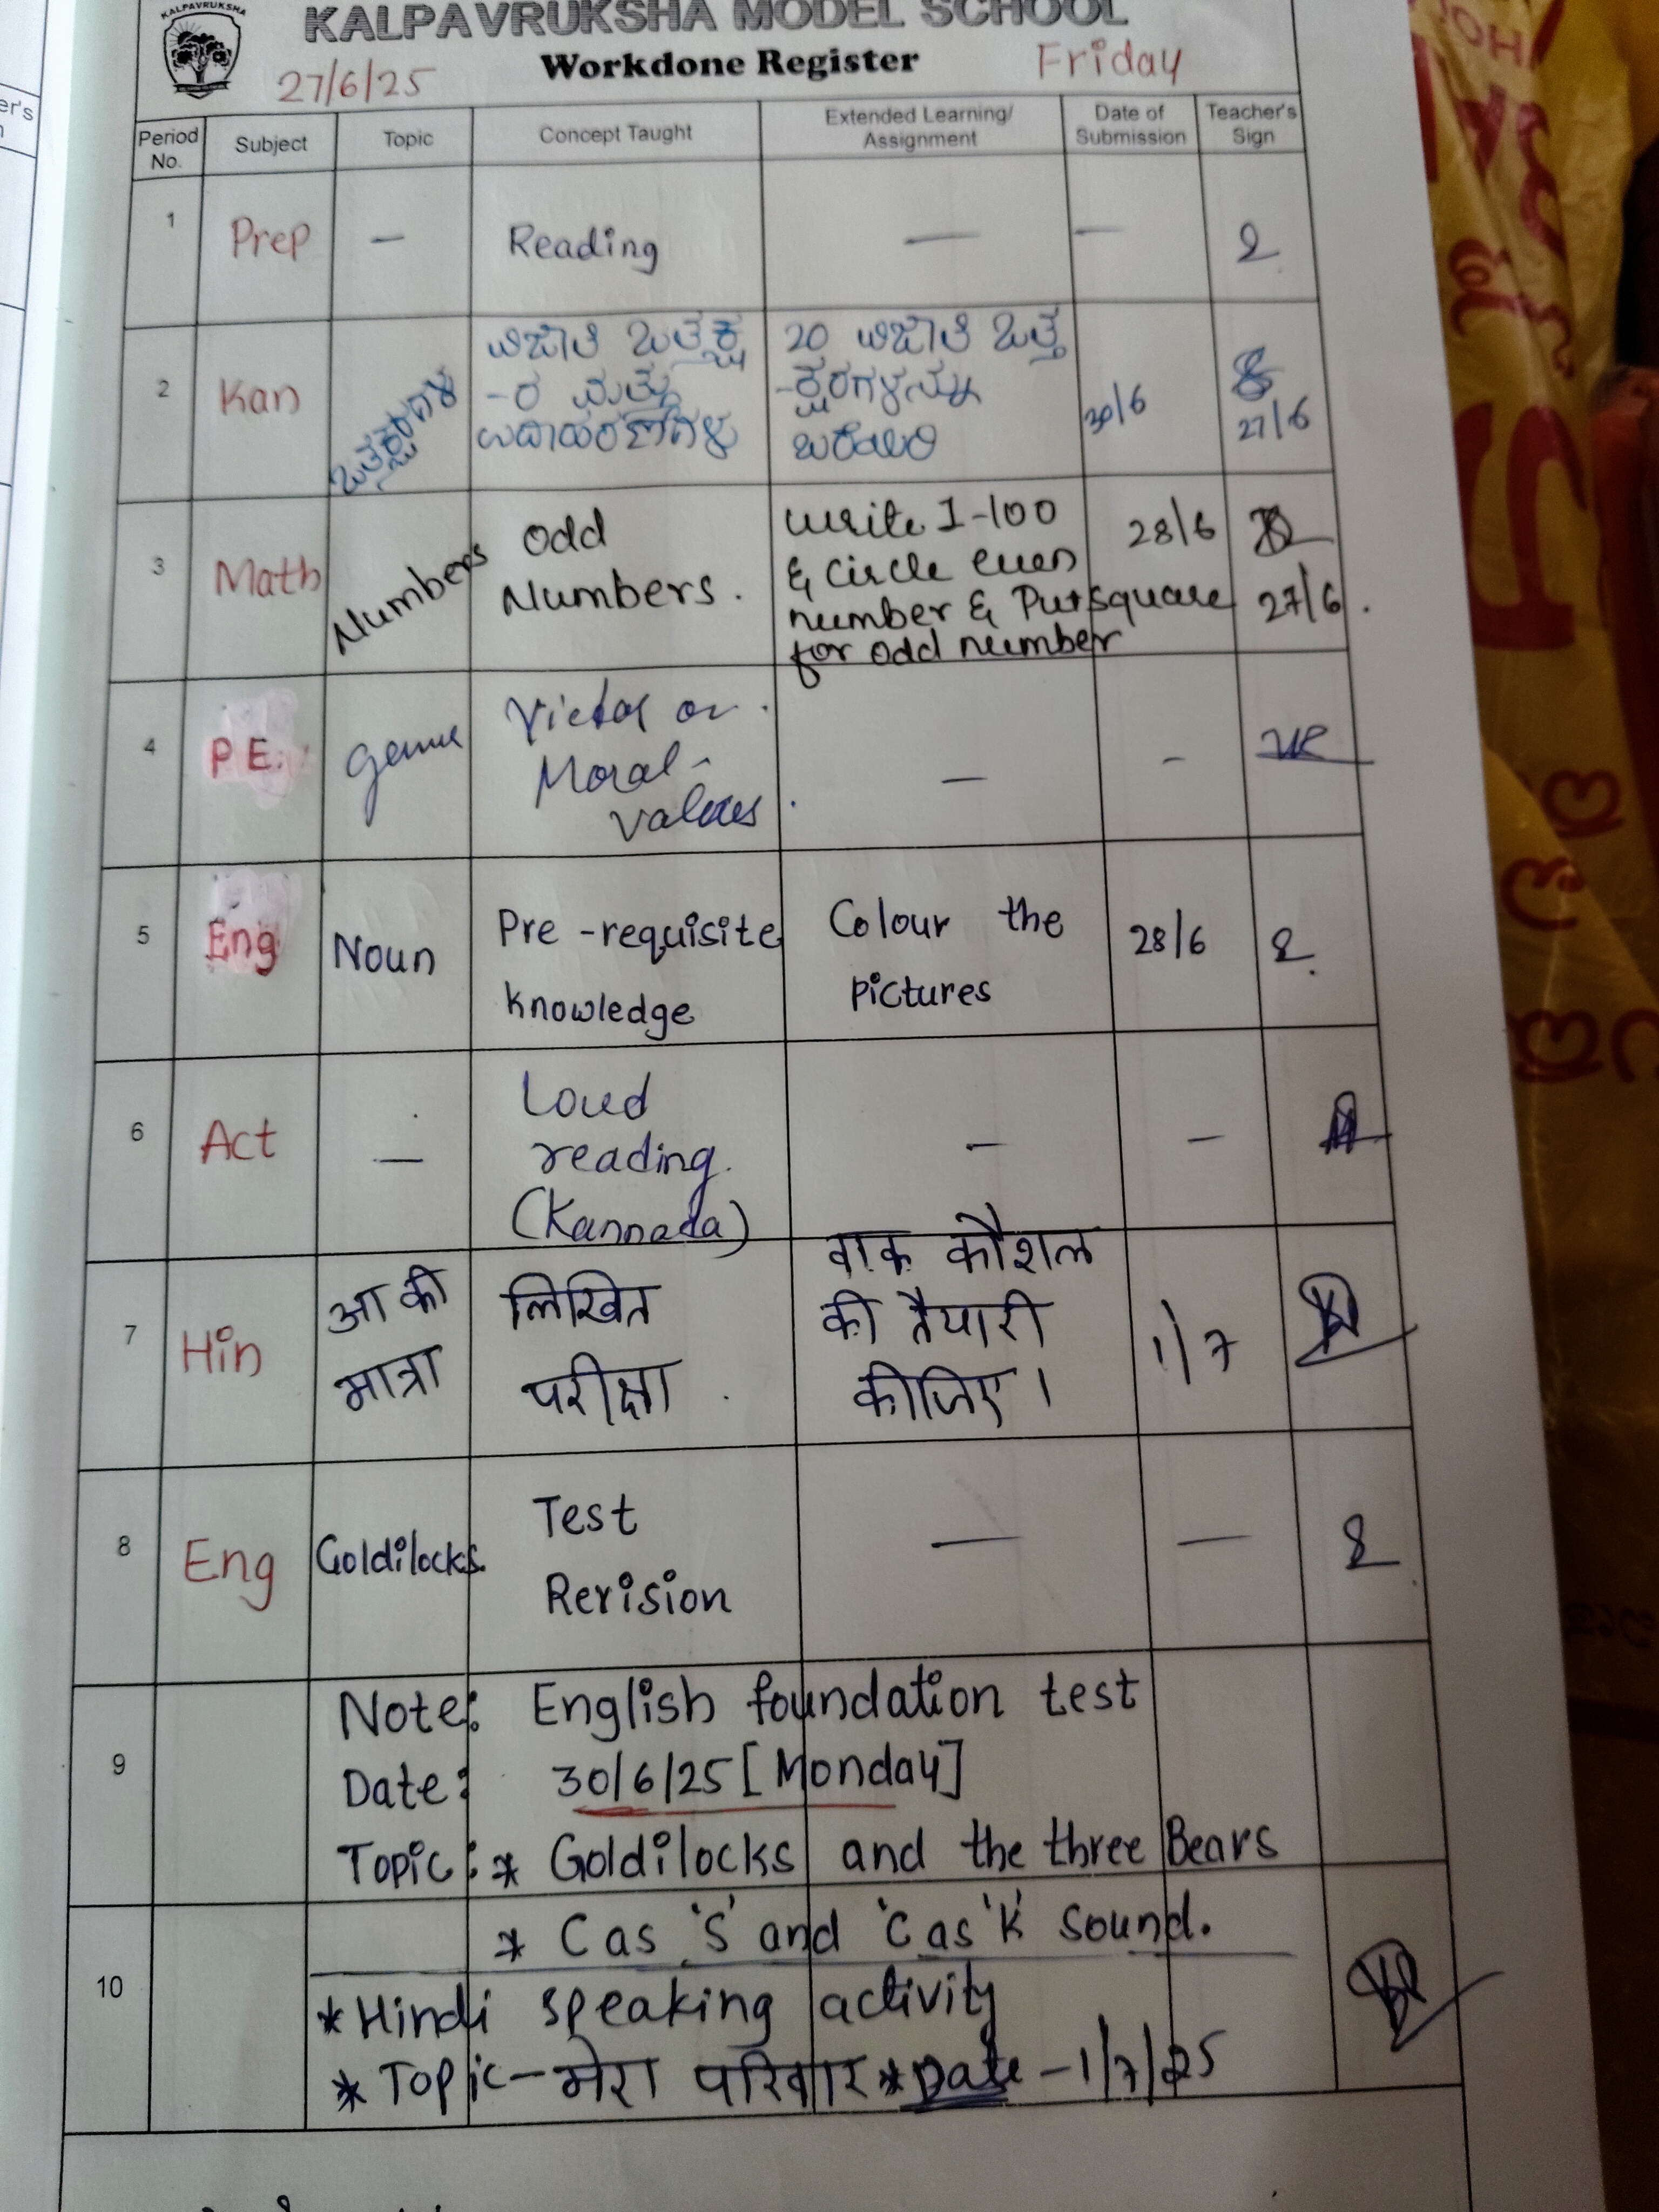 KALPAVRUKSHA
KALPAVRUKSHA MODEL SCHOOL
27/6/25 Workdone Register Friday
Period No. Subject Topic Concept Taught Extended Learning/ Assignment Date of Submission Teacher's Sign
1 Prep — Reading — —
2 Kan ಒತ್ತಕ್ಷರಗಳ
ವಿಜಾತಿ ಒತ್ತಕ್ಷ
-ರ ಮತ್ತು
ಉದಾಹರಣೆಗಳು
20 ವಿಜಾತಿ ಒತ್ತ
-ಕ್ಷರಗಳನ್ನು
ಬರೆಯಿರಿ
30/6
27/6
3 Math Numbers
Odd
Numbers.
Write 1-100
& Circle even
number & Put square
for odd number
28/6
27/6
4 P E. game
Victor or
Moral-
values
— -
5 Eng Noun
Pre-requisite
knowledge
Colour the
pictures
28/6
6 Act —
Loud
reading.
(Kannada)
— —
7 Hin
आ की
मात्रा
लिखित
परीक्षा.
वाक कौशल
की तैयारी
कीजिए।
1/7
8 Eng Goldilocks.
Test
Rerision
— —
9
Note: English foundation test
Date: 30/6/25 [Monday]
Topic: * Goldilocks and the three Bears
10
* C as 'S' and 'C as 'K' sound.
* Hindi speaking activity
* Topic - मेरा परिवार * Date - 1/7/25